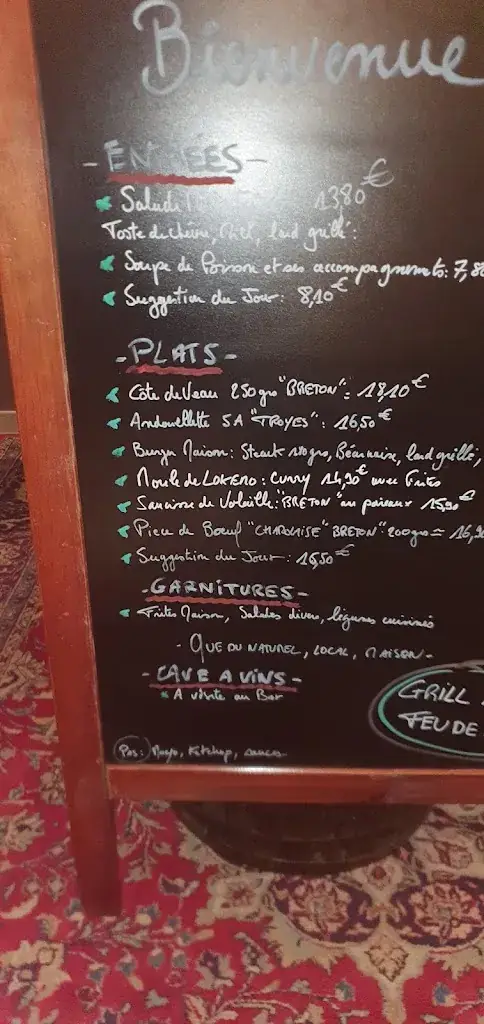 Bienvenue
- ENTRÉES -
Salade 13,80€
Toste de chèvre, Miel, lard grillé:
Soupe de Poisson et ses accompagnements: 7,8
Suggestion du Jour: 8,10€
- PLATS -
Côte de Veau 250grs "BRETON": 18,10€
Andouillette 5A "TROYES": 16,50€
Burger Maison: Steack 180grs, Béarnaise, lard grillé,
Moule de : Curry 14,90€ avec Frites
Saucisse de Volaille: "BRETON" au poireaux 15,90€
Piece de Boeuf "CHAROLAISE" BRETON" 200grs = 16,90
Suggestion du Jour: 16,50€
- GARNITURES -
Frites Maison, Salades divers, légumes cuisinés
- QUE DU NATUREL, LOCAL, MAISON -
- CAVE A VINS -
A visite au Bar
GRILL
FEU DE
Pas: Mayo, Ketchup, sauce